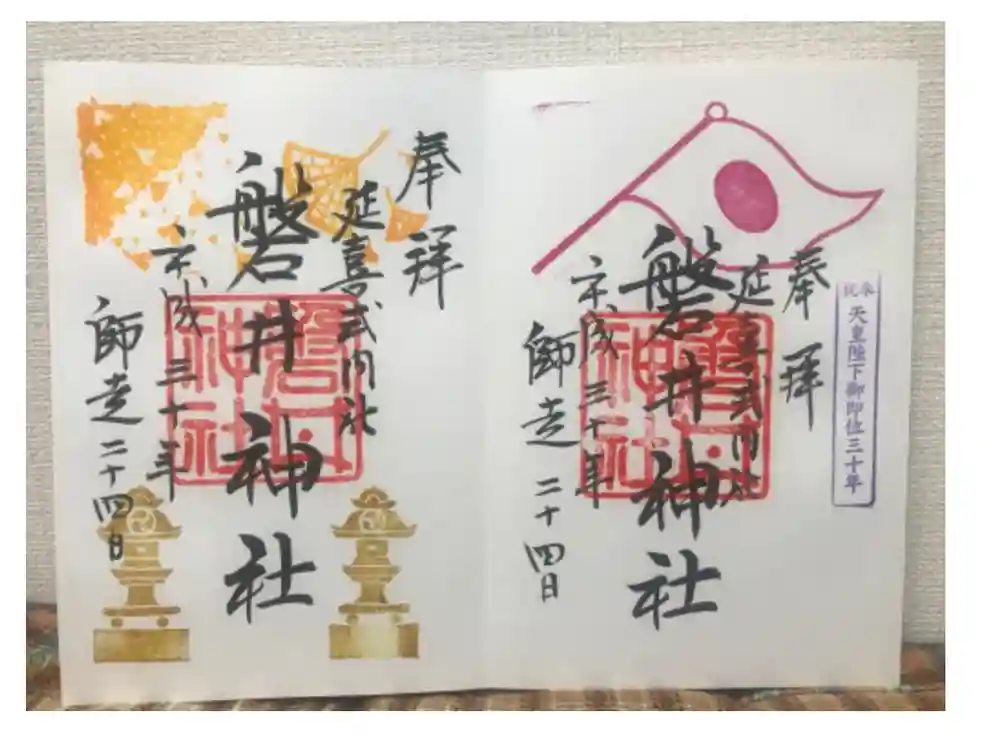 奉祝
天皇陛下御即位三十年
奉拝
延喜式内社
磐井神社
磐井神社
平成三十年
師走二十四日
奉拝
延喜式内社
磐井神社
磐井神社
平成三十年
師走二十四日